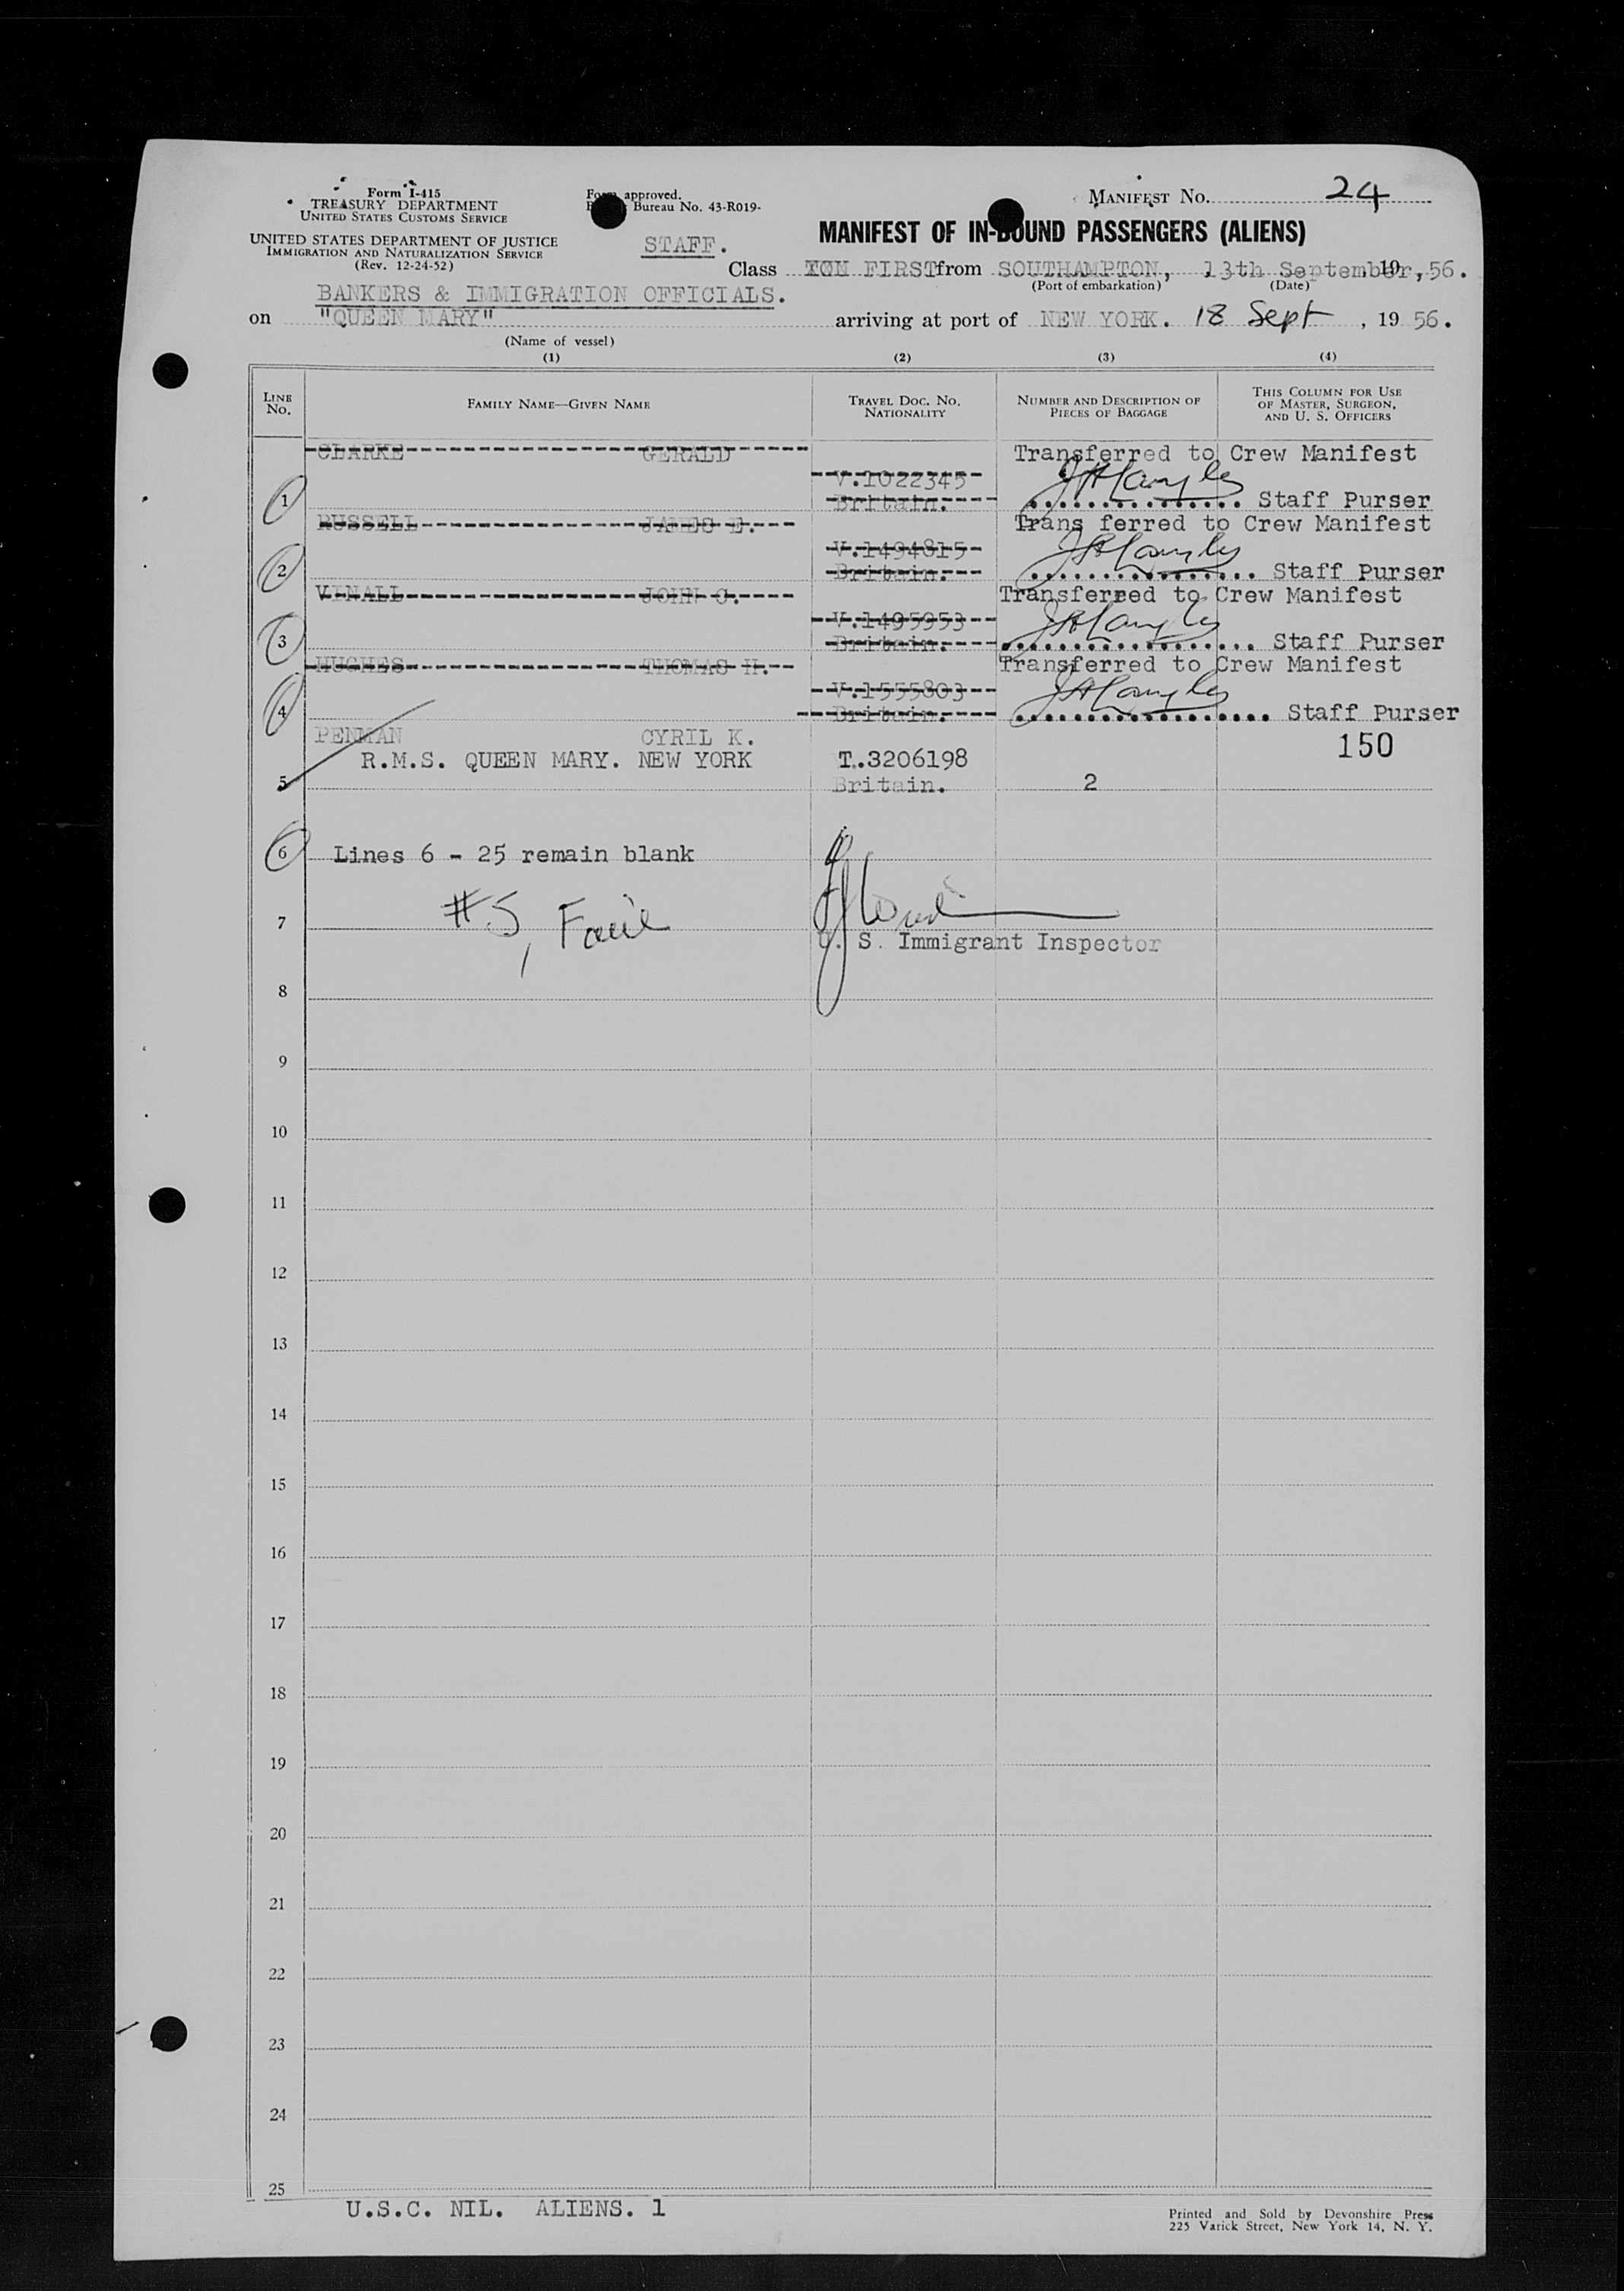 Form I-415
TREASURY DEPARTMENT
UNITED STATES CUSTOMS SERVICE
UNITED STATES DEPARTMENT OF JUSTICE
IMMIGRATION AND NATURALIZATION SERVICE
(Rev. 12-24-52)
approved.
Bureau No. 43-R019-
STAFF.
MANIFEST No. 24
MANIFEST OF IN-BOUND PASSENGERS (ALIENS)
Class FIRST from SOUTHAMPTON, 13th September, 1956.
(Port of embarkation) (Date)
BANKERS & IMMIGRATION OFFICIALS.
on "QUEEN MARY" arriving at port of NEW YORK. 18 Sept, 1956.
(Name of vessel)
(1) (2) (3) (4)
LINE No. FAMILY NAME—GIVEN NAME TRAVEL DOC. NO. NATIONALITY NUMBER AND DESCRIPTION OF PIECES OF BAGGAGE THIS COLUMN FOR USE OF MASTER, SURGEON, AND U. S. OFFICERS
CLARKE GERALD Transferred to Crew Manifest
V.1022345
1 Britain. Staff Purser
RUSSELL JAMES E. Trans ferred to Crew Manifest
V.1494815
2 Britain. Staff Purser
VINALL JOHN Transferred to Crew Manifest
V.1495953
3 Britain. Staff Purser
HUGHES THOMAS H. Transferred to Crew Manifest
V.1555803
4 Britain. Staff Purser
PENMAN CYRIL K. 150
R.M.S. QUEEN MARY. NEW YORK T.3206198
5 Britain. 2
6 Lines 6 - 25 remain blank
#5,
7
U. S. Immigrant Inspector
8
9
10
11
12
13
14
15
16
17
18
19
20
21
22
23
24
25
U.S.C. NIL. ALIENS. 1
Printed and Sold by Devonshire Press
225 Varick Street, New York 14, N. Y.